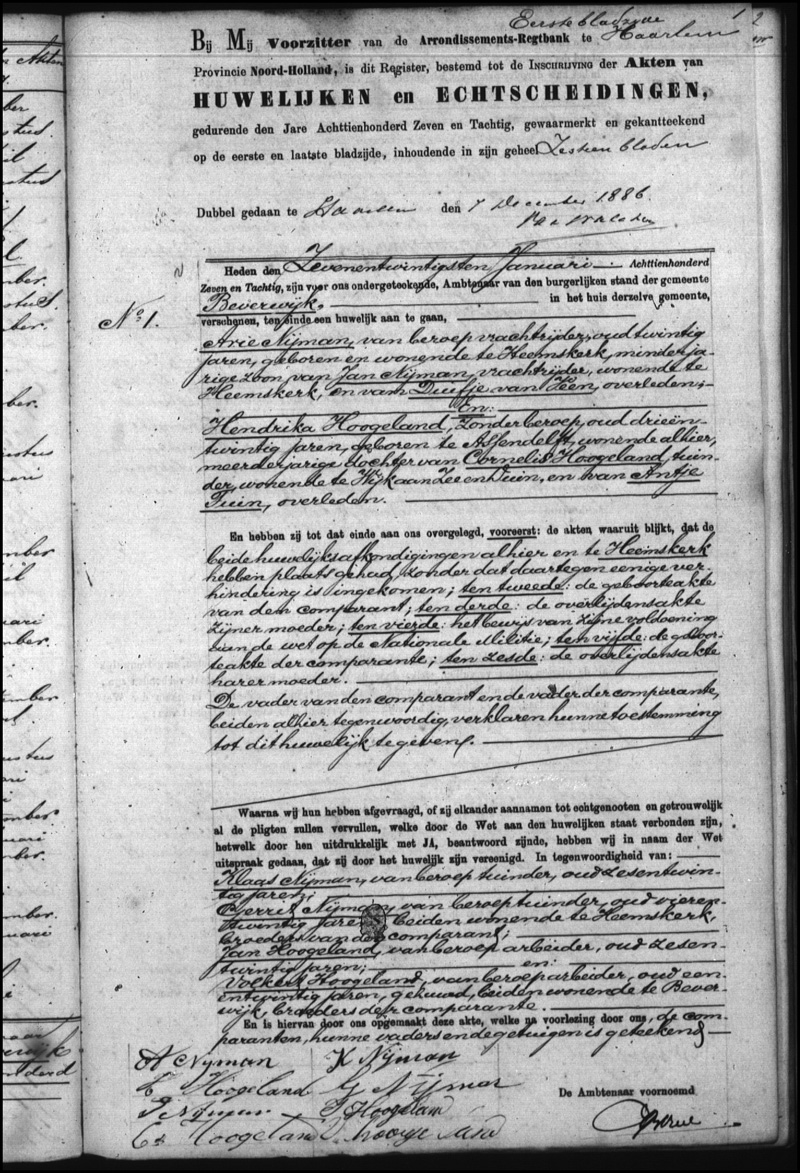 Eerste bladzijde 1 2
BIJ MIJ Voorzitter van de Arrondissements-Regtbank te Haarlem
Provincie Noord-Holland, is dit Register, bestemd tot de INSCHRIJVING der Akten van
HUWELIJKEN en ECHTSCHEIDINGEN,
gedurende den Jare Achttienhonderd Zeven en Tachtig, gewaarmerkt en gekantteekend
op de eerste en laatste bladzijde, inhoudende in zijn geheel Zestien bladen
Dubbel gedaan te Haarlem den 7 December 1886.
Heden den Zevenentwintigsten Januari Achttienhonderd
Zeven en Tachtig, zijn voor ons ondergeteekende, Ambtenaar van den burgerlijken stand der gemeente
Beverwijk, in het huis derzelve gemeente,
No 1.
verschenen, ten einde een huwelijk aan te gaan,
Arie Nijman, van beroep vrachtrijder, oud twintig
jaren, geboren en wonende te Heemskerk, minderja-
rige zoon van Jan Nijman, vrachtrijder, wonende te
Heemskerk, en van Duifje van Veen, overleden;
En:
Hendrika Hoogeland, zonder beroep, oud drieën-
twintig jaren, geboren te Assendelft, wonende alhier,
meerderjarige dochter van Cornelis Hoogeland, tuin-
der, wonende te Wijk aan Zee en Duin, en van Antje
Tuin, overleden.
En hebben zij tot dat einde aan ons overgelegd, vooreerst: de akten waaruit blijkt, dat de
beide huwelijksafkondigingen alhier en te Heemskerk
hebben plaats gehad, zonder dat daartegen eenige ver-
hindering is ingekomen; ten tweede: de geboorteakte
van dem comparant; ten derde: de overlijdensakte
zijner moeder; ten vierde: het bewijs van zijne voldoening
aan de wet op de Nationale Militie; ten vijfde: de geboor-
teakte der comparante; ten zesde: de overlijdensakte
harer moeder.
De vader van den comparant en de vader der comparante,
beiden alhier tegenwoordig, verklaren hunne toestemming
tot dit huwelijk te geven.
Waarna wij hun hebben afgevraagd, of zij elkander aannamen tot echtgenooten en getrouwelijk
al de pligten zullen vervullen, welke door de Wet aan den huwelijken staat verbonden zijn,
hetwelk door hen uitdrukkelijk met JA, beantwoord zijnde, hebben wij in naam der Wet
uitspraak gedaan, dat zij door het huwelijk zijn vereenigd. In tegenwoordigheid van:
Klaas Nijman, van beroep tuinder, oud zesentwin-
tig jaren;
Gerrit Nijman, van beroep tuinder, oud vieren-
twintig jaren; beiden wonende te Heemskerk,
broeders van den comparant;
Jan Hoogeland, van beroep arbeider, oud zesen-
twintig jaren; en:
Volkert Hoogeland, van beroep arbeider, oud een-
entwintig jaren, gehuwd, beiden wonende te Bever-
wijk, broeders der comparante.
En is hiervan door ons opgemaakt deze akte, welke na voorlezing door ons, de com-
paranten, hunne vaders en de getuigen is geteekend
A Nyman K Nyman
H Hoogeland G Nijman
De Ambtenaar voornoemd
J Nyman J Hoogeland
Cs Hoogeland V hoogeland